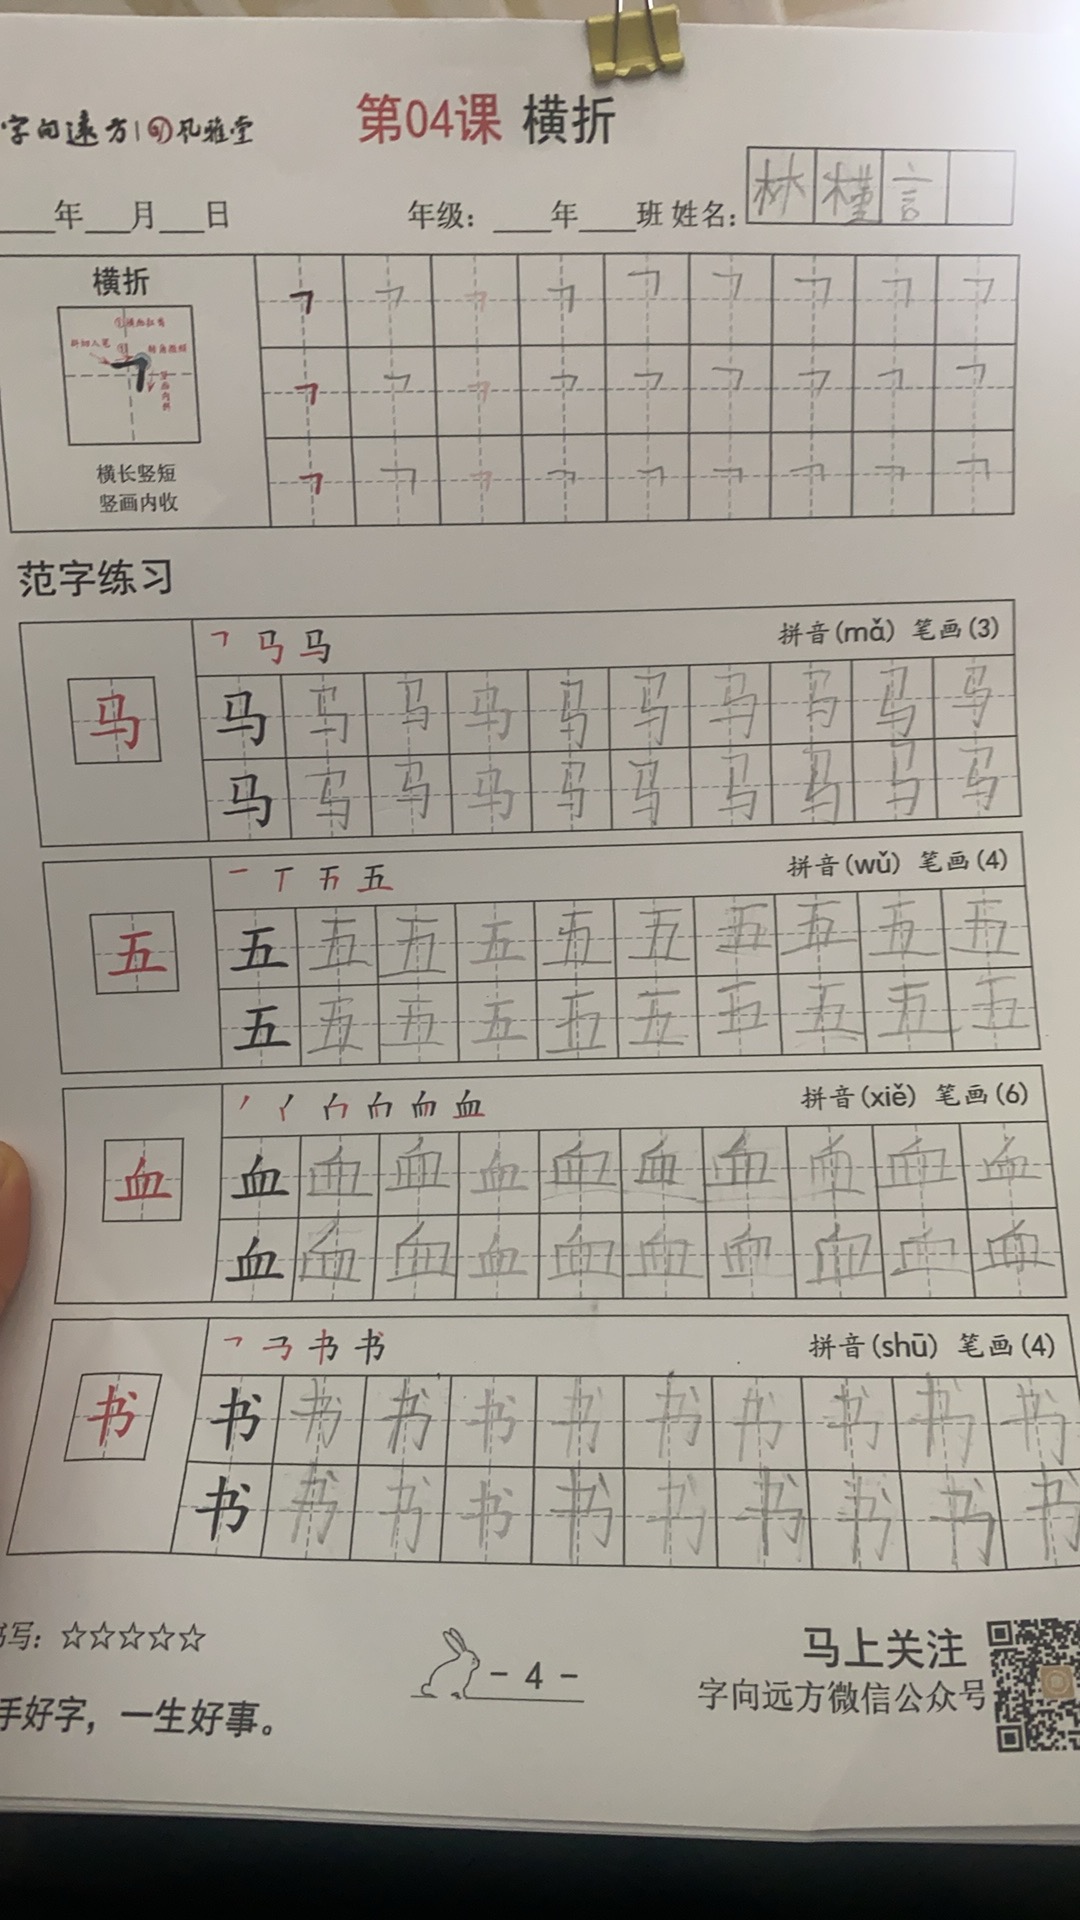 字向远方|风雅堂
第04课 横折
___年___月___日 年级：___年___班 姓名： 林槿言
横折
①横画扛肩
斜切入笔
转角顿顿
竖画内斜
横长竖短
竖画内收
范字练习
马 拼音(mǎ) 笔画(3)
马 马 马 马 马 马 马 马 马 马 马
马 马 马 马 马 马 马 马 马 马
五 拼音(wǔ) 笔画(4)
五 五 五 五 五 五 五 五 五 五 五
五 五 五 五 五 五 五 五 五 五
血 拼音(xiě) 笔画(6)
血 血 血 血 血 血 血 血 血 血 血
血 血 血 血 血 血 血 血 血 血
书 拼音(shū) 笔画(4)
书 书 书 书 书 书 书 书 书 书 书
书 书 书 书 书 书 书 书 书 书
书写：☆☆☆☆☆
- 4 -
马上关注
字向远方微信公众号
手好字，一生好事。